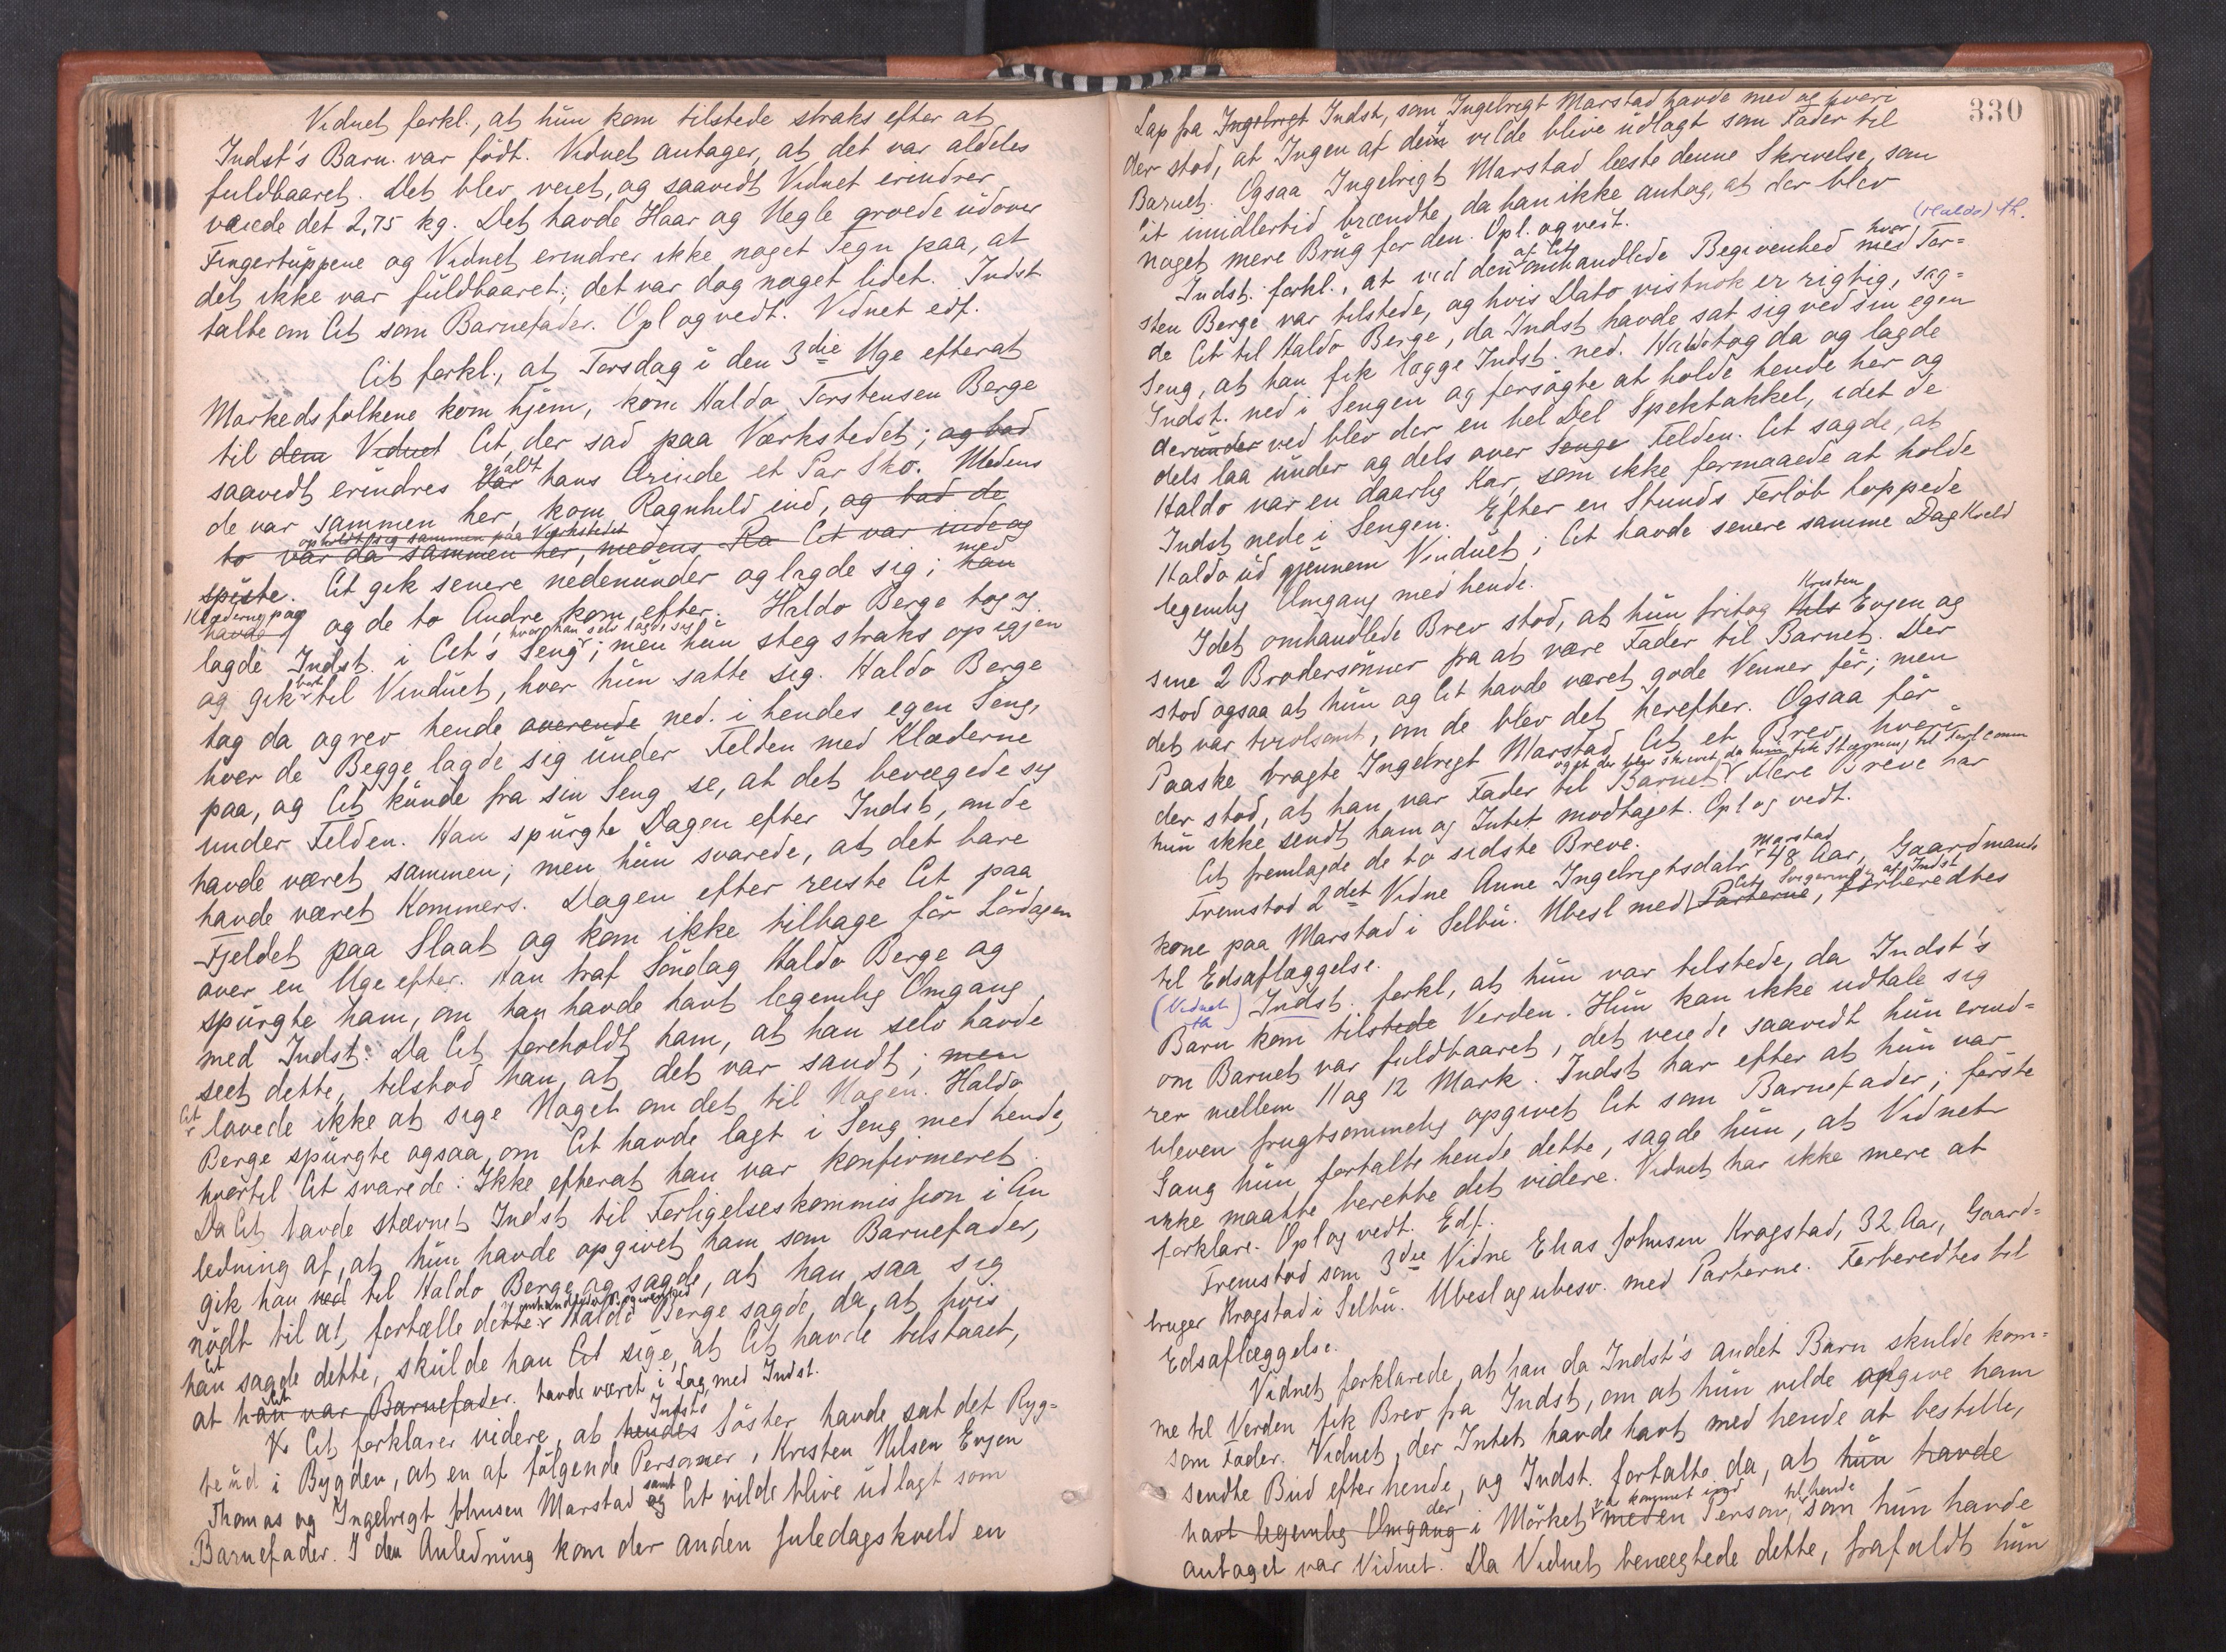 Vidnet forkl., at hun kom tilstede straks efter at
Indst's Barn var födt. Vidnet antager, at det var aldeles
fuldbaaret. Det blev veiet, og saavidt Vidnet erindrer
veiede det 2,75 kg. Det havde Haar og Negle groede udover
Fingertuppene og Vidnet erindrer ikke noget Tegn paa, at
det ikke var fuldbaaret; det var dog noget lidet. Indst
talte om Cit som Barnefader. Opl og vedt. Vidnet edf.
Cit forkl., at Torsdag i den 3die Uge efterat
Markedsfolkene kom hjem, kom Haldo Torstensen Berge
til dem Vidnet Cit, der sad paa Værkstedet; og bad
saavidt erindres var gjaldt hans Ærinde et Par Sko. Medens
de var sammen her, kom Ragnhild ind, og bad de
opholdt sig sammen paa Værkstedet
to var da sammen her, medens Ra Cit var inde og
spiste. Cit gik senere nedenunder og lagde sig; han med
Klæderne paa
havde og de to Andre kom efter. Haldo Berge tog og
lagde Indst. i Cit's Seng, hvor han selv lagde sig; men hun steg straks op igjen
og gik bort til Vinduet, hvor hun satte sig. Haldo Berge
tog da og rev hende overende ned i hendes egen Seng,
hvor de Begge lagde sig under Felden med Klæderne
paa, og Cit kunde fra sin Seng se, at det bevægede sig
under Felden. Han spurgte Dagen efter Indst, om de
havde været sammen; men hun svarede, at det bare
havde været Kommers. Dagen efter reiste Cit paa
Fjeldet paa Slaat og kom ikke tilbage för Lördagen
over en Uge efter. Han traf Söndag Haldo Berge og
spurgte ham, om han havde havt legemlig Omgang
med Indst. Da Cit foreholdt ham, at han selv havde
seet dette, tilstod han, at det var sandt; men
Cit lovede ikke at sige Noget om det til Nogen. Haldo
Berge spurgte ogsaa, om Cit havde lagt i Seng med hende,
hvortil Cit svarede: Ikke efterat han var konfirmeret.
Da Cit havde stævnet Indst til Forligelseskommission i An
ledning af, at hun havde opgivet ham som Barnefader,
gik han ned til Haldo Berge og sagde, at han saa sig
nödt til at fortælle dette omhandlede Begivenhed Haldo Berge sagde da, at hvis
han Cit sagde dette, skulde han Cit sige, at Cit havde tilstaaet,
at han Cit var Barnefader. havde været i Lag med Indst.
Cit forklarer videre, at hendes Indsts Söster havde sat det Ryg=
te ud i Bygden, at en af fölgende Personer, Kristen Nilsen Evjen
Thomas og Ingebrigt Johnsen Marstad og samt Cit vilde blive udlagt som
Barnefader. I den Anledning kom der anden Juledagskveld en
330
Lap fra Ingebrigt Indst, som Ingebrigt Marstad havde med og hvori
der stod, at Ingen af dem vilde blive udlagt som Fader til
Barnet. Ogsaa Ingebrigt Marstad læste denne Skrivelse, som
Cit imidlertid brændte, da han ikke antog, at der blev
noget mere Brug for den. Opl. og vedt.
(Haldo) th.
Indst. forkl., at ved den af Cit omhandlede Begivenhed med hvor Tor=
sten Berge var tilstede, og hvis Dato vistnok er rigtig, sag=
de Cit til Haldo Berge, da Indst havde sat sig ved sin egen
Seng, at han fik lægge Indst. ned. Haldo tog da og lagde
Indst. ned i Sengen og forsögte at holde hende her og
derunder ved blev der en hel Del Spektakkel, idet de
dels laa under og dels over Senge Felden. Cit sagde, at
Haldo var en daarlig Kar, som ikke formaaede at holde
Indst nede i Sengen. Efter en Stunds Forlöb hoppede
Haldo ud gjennem Vinduet; Cit havde senere samme Dag Kveld
legemlig Omgang med hende.
I det omhandlede Brev stod, at hun fritog Nils Kristen Evjen og
sine 2 Brodersönner fra at være Fader til Barnet. Der
stod ogsaa at hun og Cit havde været gode Venner för; men
det var tvivlsomt, om de blev det herefter. Ogsaa för
Paaske bragte Ingebrigt Marstad Cit et Brev, hvori
der stod, at han var Fader til Barnet og at der blev skrevet, da hun fik Stævning til Forl.comm Flere Breve har
hun ikke sendt ham og Intet modtaget. Opl og vedt.
Cit fremlagde de to sidste Breve.
Fremstod 2det Vidne Anne Ingebrigtsdatr Marstad 48 Aar, Gaardmands
kone paa Marstad i Selbu. Ubesl med Parterne, Cit, Svigerinde af Indst forberedtes
til Edsaflæggelse.
(Vidnet th) Indst. forkl, at hun var tilstede, da Indst's
Barn kom tilstede Verden. Hun kan ikke udtale sig
om Barnet var fuldbaaret, det veiede saavidt hun erind=
rer mellem 11 og 12 Mark. Indst har efter at hun var
bleven frugtsommelig opgivet Cit som Barnefader; förste
Gang hun fortalte hende dette, sagde hun, at Vidnet
ikke maatte berette det videre. Vidnet har ikke mere at
forklare. Opl og vedt. Edf.
Fremstod som 3die Vidne Elias Johnsen Kragstad, 32 Aar, Gaard=
bruger Kragstad i Selbu. Ubesl og ubesv. med Parterne. Forberedtes til
Edsaflæggelse.
Vidnet forklarede, at han da Indst's andet Barn skulde kom=
me til Verden fik Brev fra Indst, om at hun vilde opgive ham
som Fader. Vidnet, der Intet havde havt med hende at bestille,
sendte Bud efter hende, og Indst. fortalte da, at hun havde
havt legemlig Omgang der i Mörket var kommet ind med en Person til hende, som hun havde
antaget var Vidnet. Da Vidnet benægtede dette, frafaldt hun